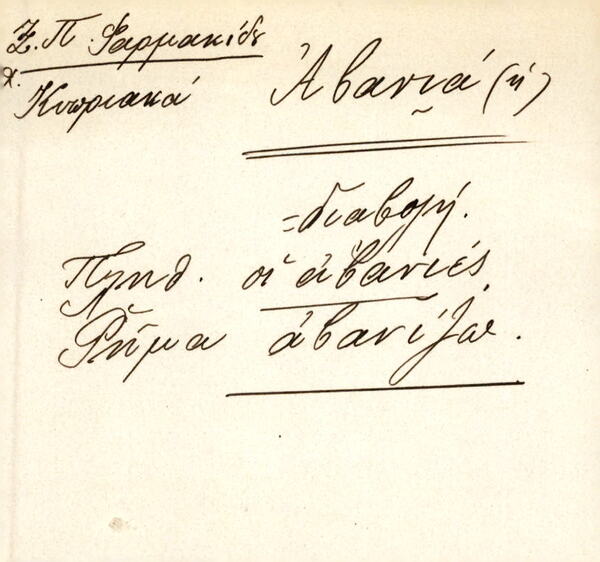 Ξ. Π. Φαρμακίδε
χ.
Κυπριακά
Ἀβανιά (ἡ)
=διαβολή.
Πληθ. οἱ ἀβανιές
Ρῆμα ἀβανίζω.